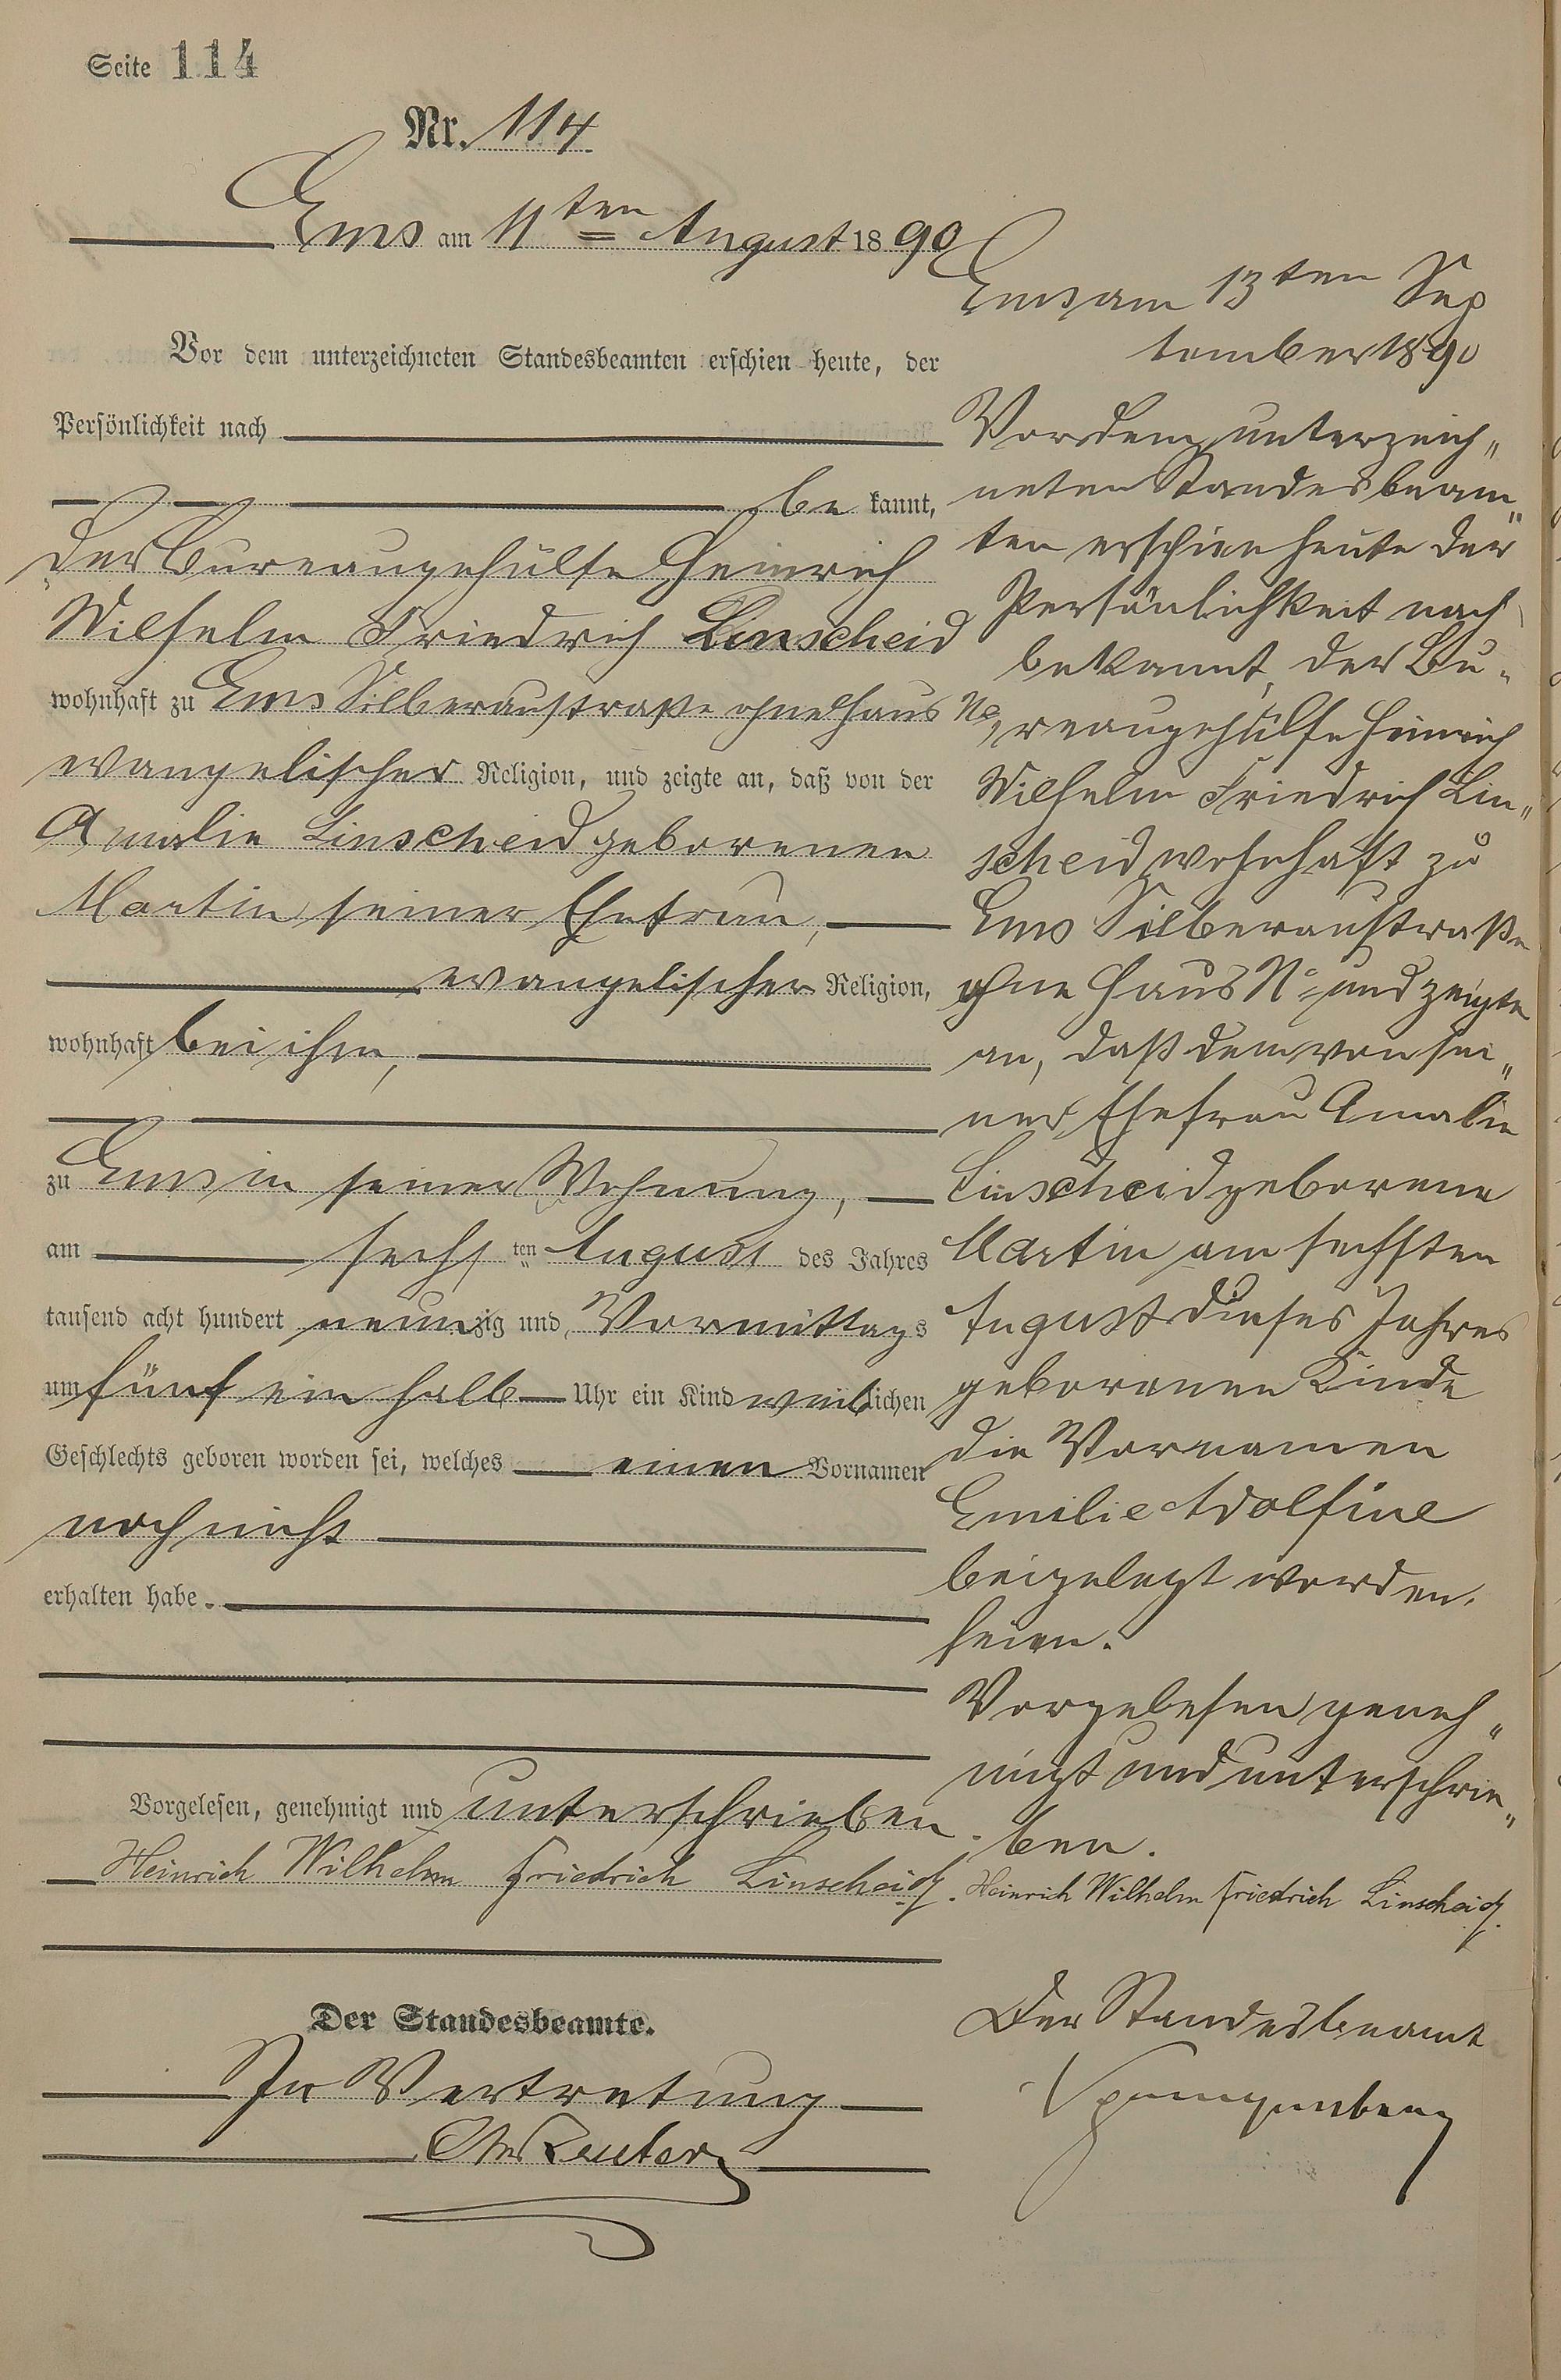 Seite 114
Nr. 114
Ems am 11ten August 1890
Vor dem unterzeichneten Standesbeamten erschien heute, der
Persönlichkeit nach
be kannt,
der Bureaugehülfe Heinrich
Wilhelm Friedrich Linscheid
wohnhaft zu Ems Silberaustraße ohne Haus No,
evangelischer Religion, und zeigte an, daß von der
Amalie Linscheid geborenen
Martin seiner Ehefrau,
evangelischer Religion,
wohnhaft bei ihm,
zu Ems in seiner Wohnung,
am sechs ten August des Jahres
tausend acht hundert neunzig und Vormittags
um fünf ein halb Uhr ein Kind weiblichen
Geschlechts geboren worden sei, welches einen Vornamen
noch nicht
erhalten habe.
Vorgelesen, genehmigt und unterschrieben.
Heinrich Wilhelm Friedrich Linscheid.
Der Standesbeamte.
In Vertretung
Reuter
Ems am 13ten Sep
tember 1890
Vor dem unterzeich"
neten Standesbeam"
ten erschien heute der
Persönlichkeit nach
bekannt, der Bu"
reaugehülfe Heinrich
Wilhelm Friedrich Lin"
scheid wohnhaft zu
Ems Silberaustraße
ohne Haus No und zeigte
an, daß dem von sei"
ner Ehefrau Amalie
Linscheid geborene
Martin am sechsten
August dieses Jahres
geborenen Kinde
die Vornamen
Emilie Adolfine
beigelegt worden
seien.
Vorgelesen geneh"
migt und unterschrie"
ben.
Heinrich Wilhelm Friedrich Linscheid.
Der Standesbeamt
Spangenberg